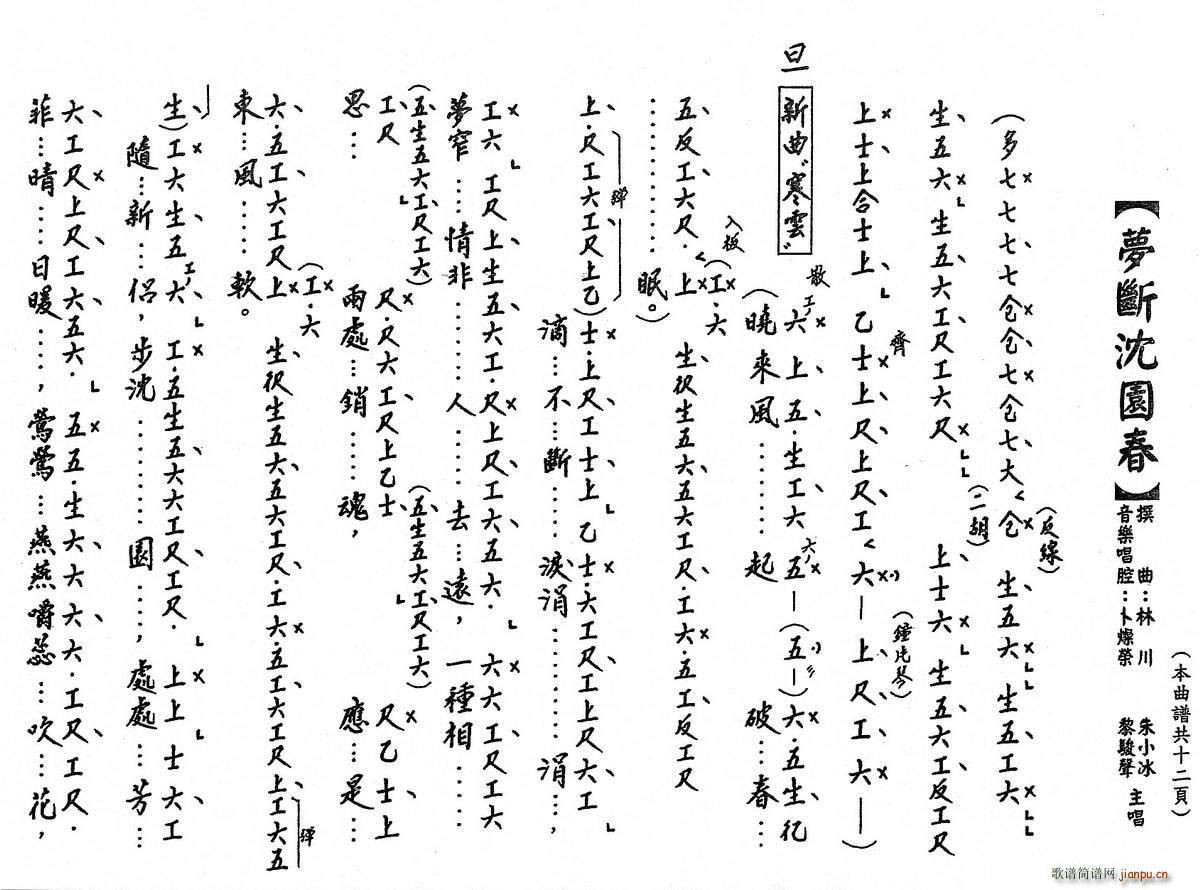 【夢斷沈園春】
撰曲：林川
音樂唱腔：卜燦榮
朱小冰
黎駿聲
主唱
（本曲譜共十二頁）
（多七七七七仓仓七仓七大仓
（反線）
生五六 生五工六
生五六 生五六工尺工六尺
（二胡）
上士六 生五六工反工尺
上士上合士上 乙士上尺上尺工六— 上尺工六—）
齊
（鐘片琴）
旦
新曲“寒雲”
散工六上五·生工六六五—（五—）六·五生仜
（曉來風………起 破…春…
入板
五反工六尺·上（工·六 生伬生五六五六工尺·工六·五工反工尺
………眠。）
上·尺工六工尺上乙）士·上尺工士上 乙士·六工尺工上尺六工
彈
滴…不…斷 淚涓…………涓…，
工六 工尺上生五六工·尺上尺工六五六· 六六工尺工六
夢窄…情非……人……去…遠，一種相……
（五生五六工尺工六）
工尺 尺·尺六工尺上乙士（五生五六工尺工六） 尺乙士上
思… 兩處…銷…魂， 應…是…
六·五工六工尺上（工·六 生伬生五六五六工尺·工六·五工六工尺上工六五
彈
東…風……軟。
生）工六生五工六 工·五生五六六工尺工尺· 上上士六工
隨…新…侶，步沈………園…，處處…芳…
六工尺上尺工六五六· 五五·生六六六六·工尺工尺·
菲…晴……日暖……，鶯鶯…燕燕嚼蕊…吹…花，
歌谱简谱网
jianpu.cn